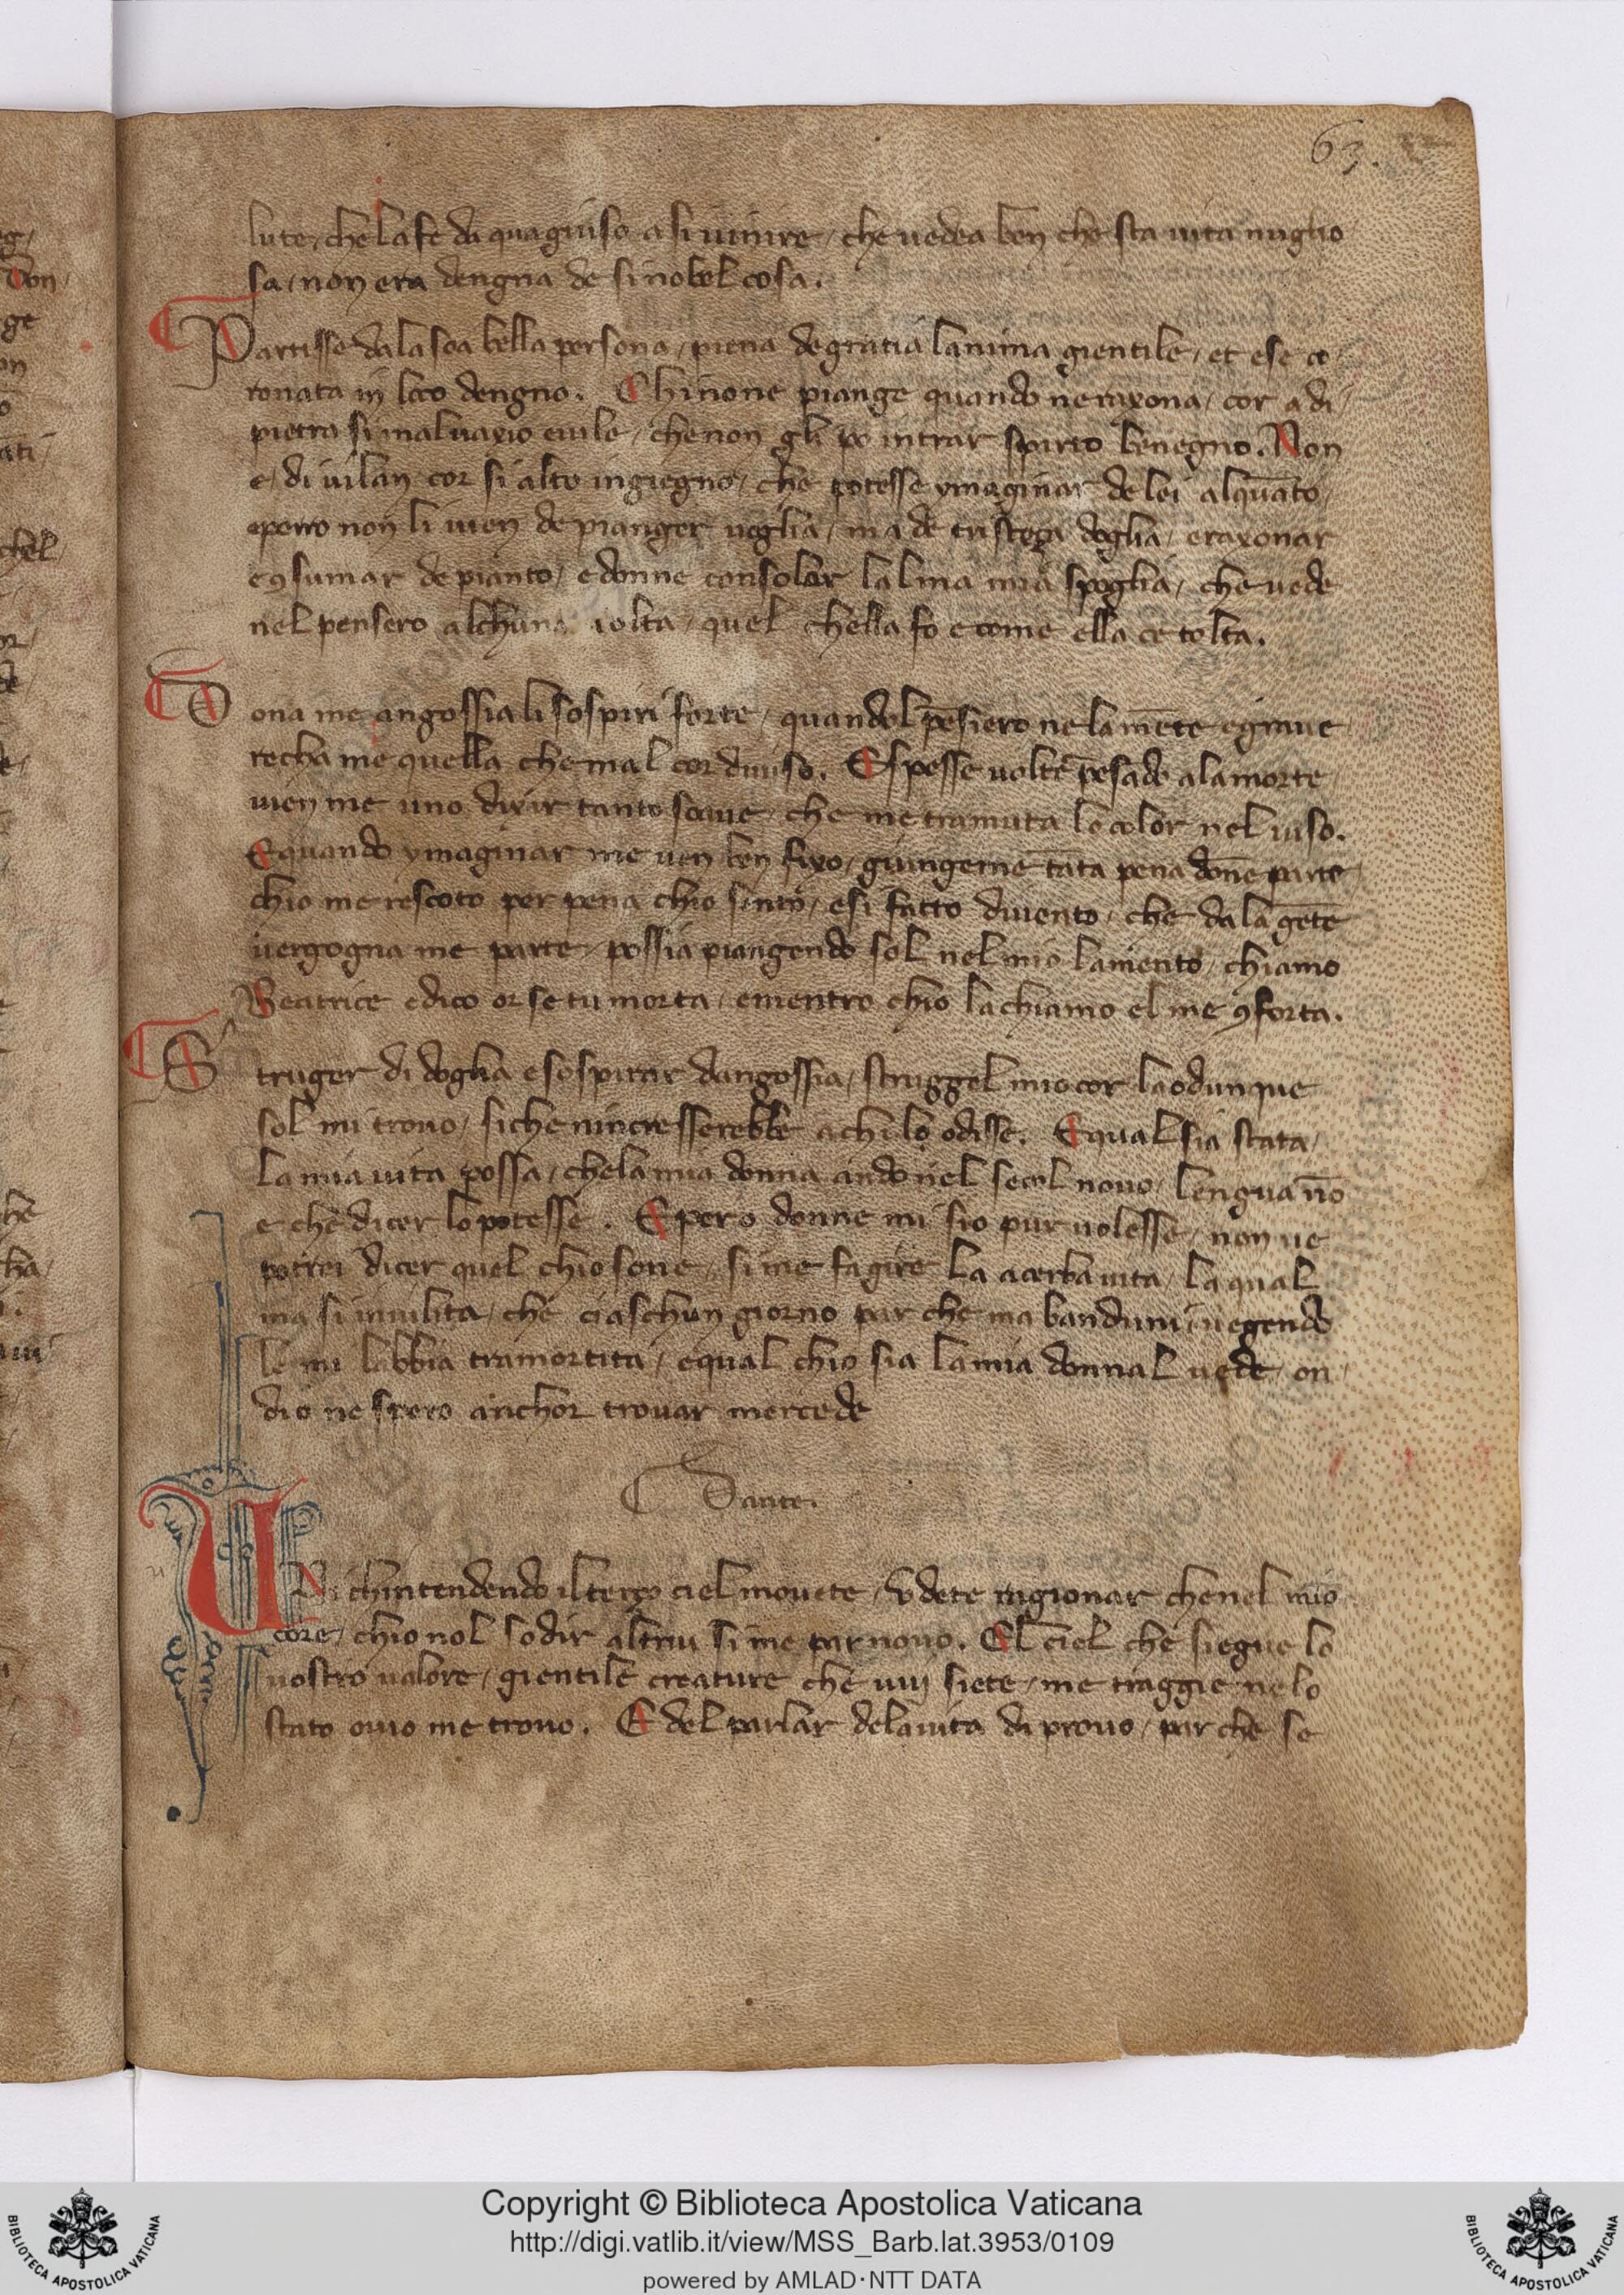 63.
lute, che la fe di qua giuso a si uinire, che uedea ben che sta uita nuglio
sa, non era dengna de si nobel cosa.
Partisse da la soa bella persona, piena de gratia lanima gientile, et ese co
ronata in loco dengno. Chi none piange quando ne raxona, cor a di
pietra si maluaxio e uile, che non gli po intrar spirto benegno. Non
e, di uilan cor si alto ingiegno, che potesse ymaginar de lei alquāto,
eperro non li uien de pianger uoglia, ma de tristeza doglia, e raxonar
e ꝯsumar de pianto, e donne consolar lalma mia spoglia, che uede
nel pensero alchuna uolta, quel chella fo e come ella ce tolta.
Dona me angossia li sospiri forte, quandol pēsiero ne la mēte egraue
recha me quella che mal cor diuiso. E spesse uolte pēsado a la morte,
uien me uno dixir tanto soaue, che me tramuta lo color nel uiso.
E quando ymaginar me uen ben fixo, giungeme tāta pena dōne parte,
chio me rescoto per pena chio sento, e si fatto diuento, che da la gēte
uergogna me parte, possia piangendo sol nel mio lamento, chiamo
Beatrice e dico or se tu morta, e mentro chio la chiamo el me ꝯforta.
Struger di doglia e sospirar dangossia, struggel mio cor laodunque
sol mi trouo, si che nincresserebbe a chi lo odisse. E qual sia stata,
la mia uita possa, che la mia donna ando nel secol nouo, lengua nō
e che dicer lo potesse. E pero donne mi sio pur uolesse, non ue
potrei dicer quel chio sone, si me fa gire la acerba uita, la qual
ma si inuilita, che ciaschun giorno par che ma banduni, uegendo
le mi labbia tramortita, e qual chio sia la mia donnal uede, on
dio ne spero anchor trouar mercede
Dante.
u
Ui chintendendo il terzo ciel mouete, Vdete ragionar che nel mio
core, chio nol so dir altrui si me par nouo. El ciel che siegue lo
uostro ualore, gientile creature che uuj siete, me traggie ne lo
stato ouio me trouo. E del parlar dela uita di prouo, par che se
Copyright © Biblioteca Apostolica Vaticana
http://digi.vatlib.it/view/MSS_Barb.lat.3953/0109
powered by AMLAD·NTT DATA
BIBLIOTECA APOSTOLICA VATICANA
BIBLIOTECA APOSTOLICA VATICANA